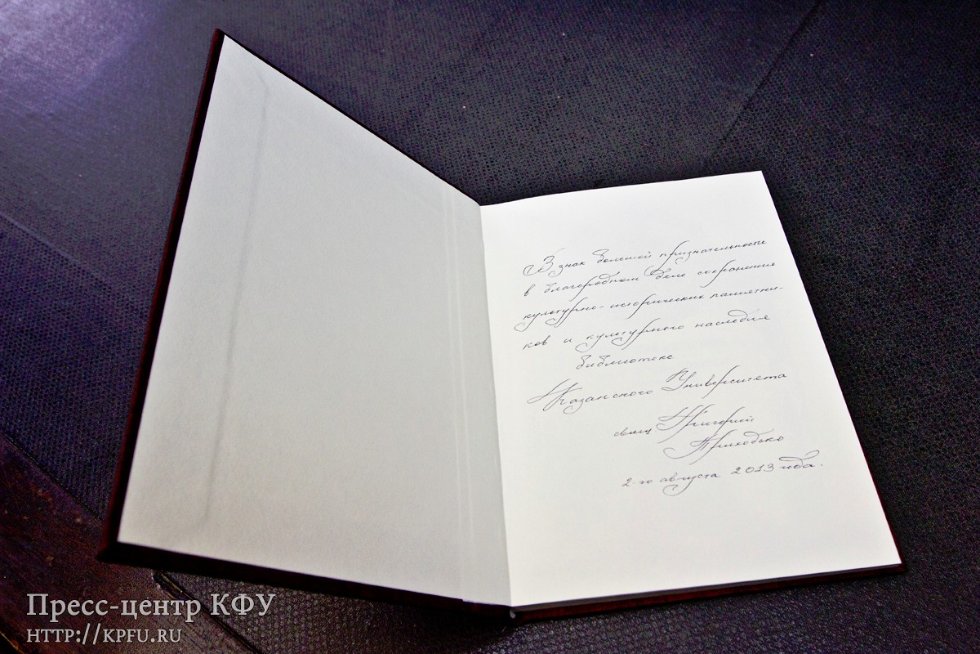 В знак большой признательности
в благородном деле сохранения
культурно-исторических памятни-
ков и культурного наследия
библиотеке
Казанского Университета
свящ Григорий
Приходько
2-го августа 2013 года.
Пресс-центр КФУ
HTTP://KPFU.RU